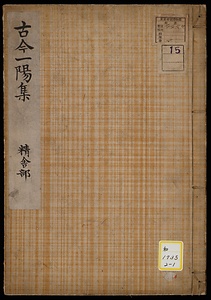 古今一陽集
精舎部
15
和
1733
2-1